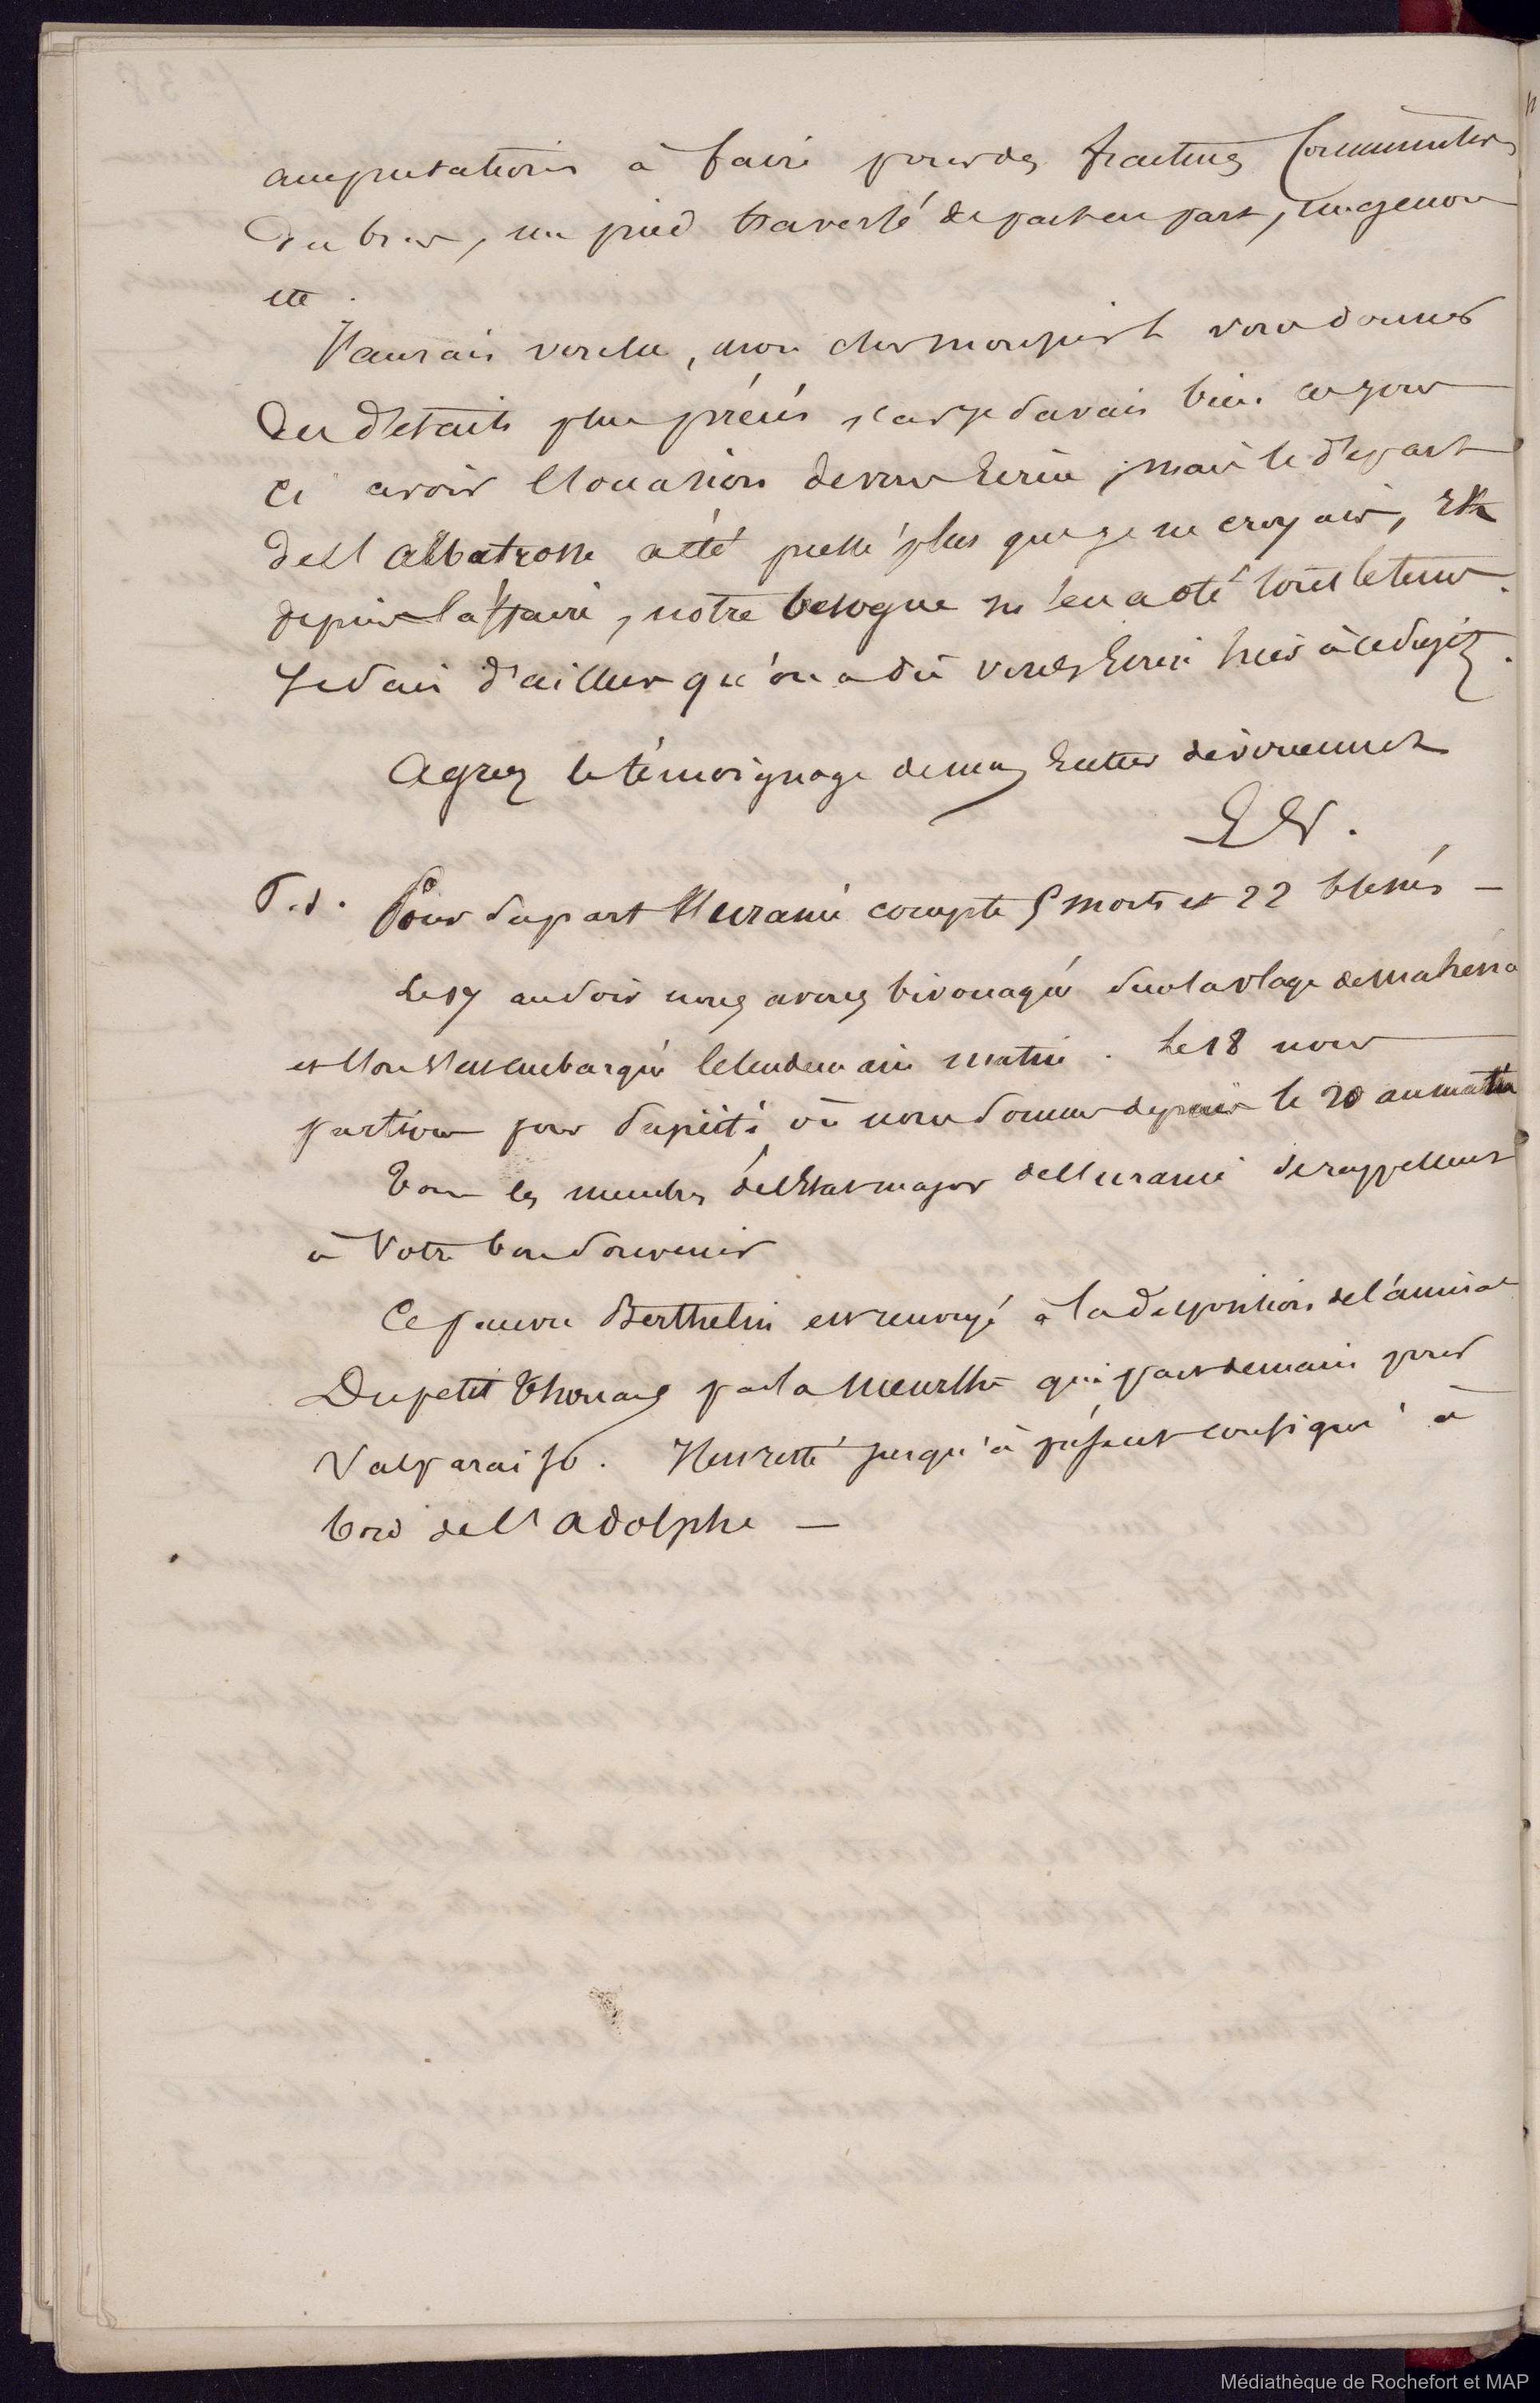 amputations à faire pour des fractures Comminutives
du bras, un pied traversé de part en part, un genou
etc.
J'aurais voulu, mon cher monsieur vous donner
des détails plus précis, car je savais bien ces jours
ci avoir l'occasion de vous Ecrire, mais le départ
de l'Albatrosse a été pressé plus que je ne croyais, Et
depuis l'affaire, notre besogne m'en a oté tout le tems.
Je sais d'ailleurs qu'on a dû vous Ecrire hier à ce sujet.
Agréez le témoignage de mon Entier dévouement
P.S. Pour sa part l'Uranie compte 5 morts et 22 blessés —
Le 17 au soir nous avons bivouaqué sur la plage de mahena
et l'on s'est embarqué le lendemain matin. Le 18 nous
partions pour Papeïti, où nous sommes depuis le 20 au matin
Tous les membres de l'Etat major de l'uranie se rappellent
à Votre bon souvenir
Ce pauvre Berthelin est renvoyé à la disposition de l'amiral
Dupetit Thouars par la Meurthe qui part demain pour
Valparaiso. Il est resté jusqu'à présent consigné à
bord de l'adolphe —
Médiathèque de Rochefort et MAP